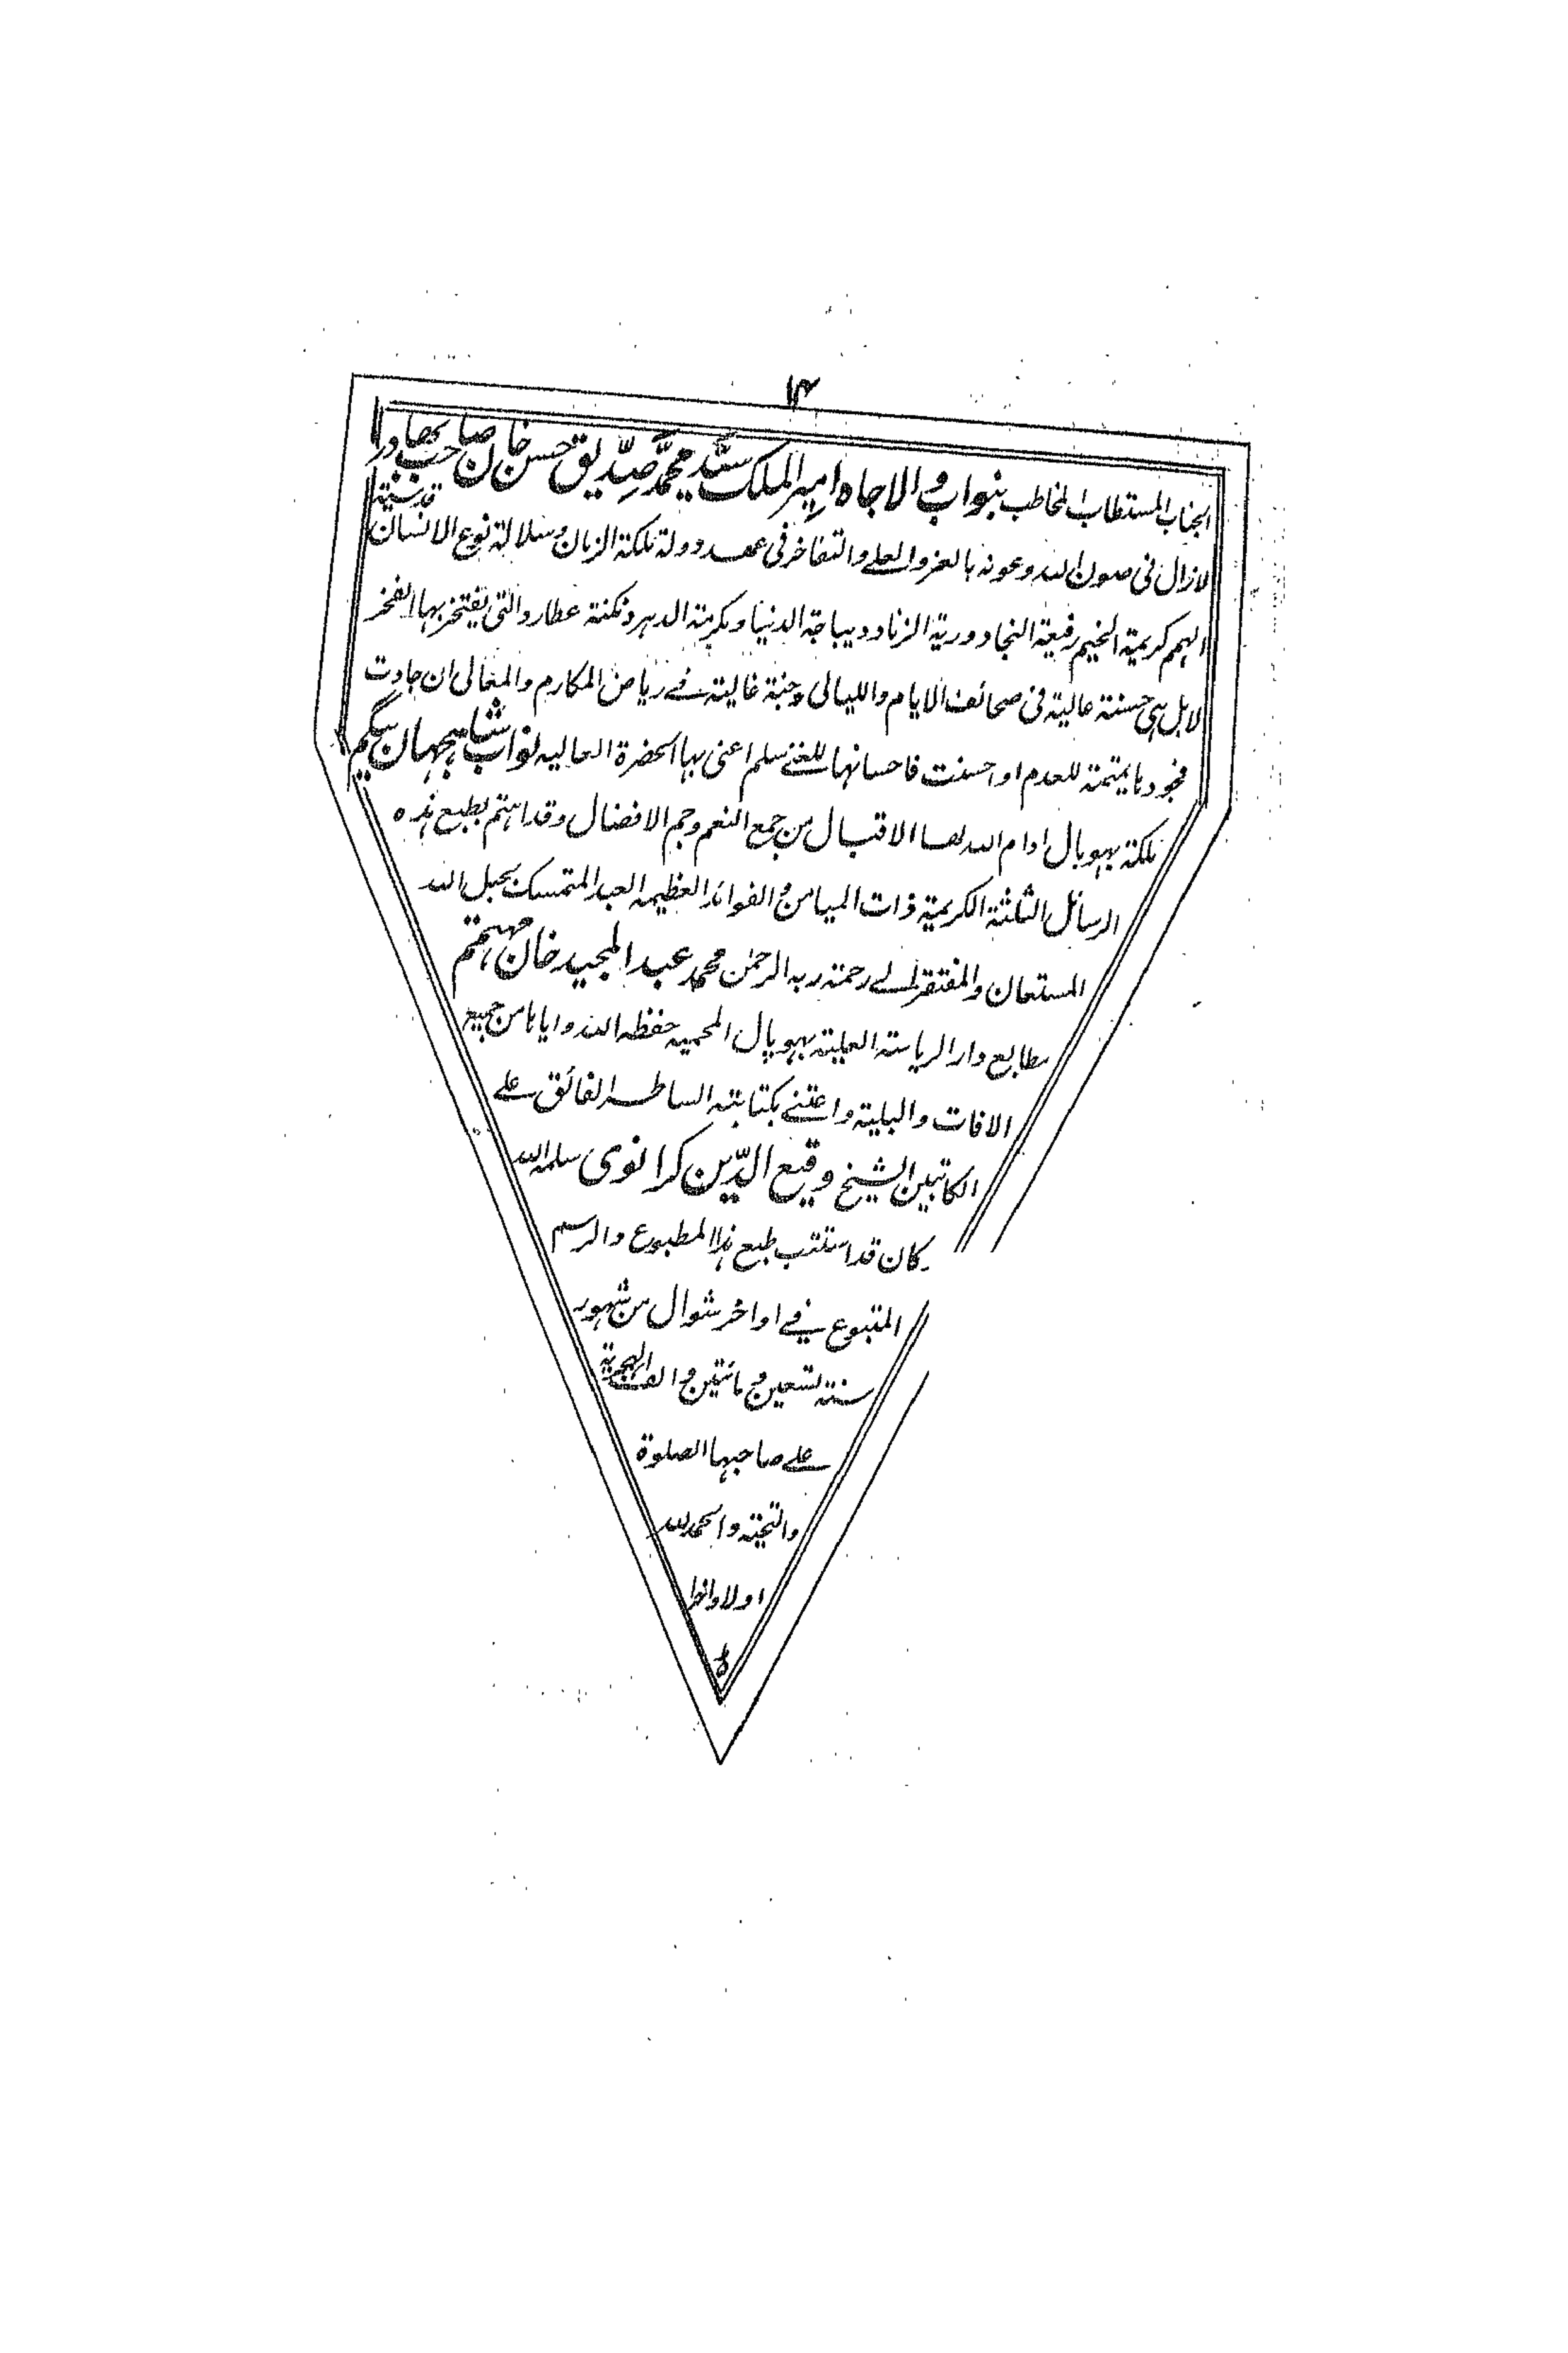 ١٤
الجناب المستطاب المخاطب بنواب والاجاه امير الملك سيّد محمّد صدّيق حسن خان صاحب بهادر
لازال فى صون الله وعونه بالعز والعلے والتفاخر فى عهد دولة ملكة الزمان وسلالة نوع الانسان قدسية
الهمم كريمة الخيم رفيعة النجاد ورية الزناد ديباجة الدنيا ومكرمة الدهر ونكتة عطارد التى يفتخر بها الفخر
لا بل هى حسنة عالية فى صحائف الايام والليالى وجنة غالية فے رياض المكارم والمعالى ان جادت
فجودها يمتمة للعدم او احسنت فاحسانها للغنے سلم اعنى بها الحضرة العاليه نواب شاهجهان بيگم
ملكة بهوپال ادام الله لها الاقبال من جمع النعم وجم الافضال وقد اهتم بطبع هذه
الرسائل الثلثة الكريمة ذات الميامن والفوائد العظيمه العبد المتمسك بحبل الله
المستعان والمفتقر الے رحمة ربه الرحمٰن محمد عبد المجيد خان مهتمم
مطابع دار الرياسة العلية بهوپال المحميه حفظه الله وايانا من جميع
الافات والبلية واعتنے بكتابته الساطعه الفائق علے
الكاتبين الشيخ وقيع الدّين كرانوى سلمه الله
كان قد استتب طبع هذا المطبوع والرسم
المتبوع فے اواخر شوال من شهور
سنة تسعين ومائتين والف الهجرية
علے صاحبها الصلوة
والتحية والحمد لله
اولا واخرا